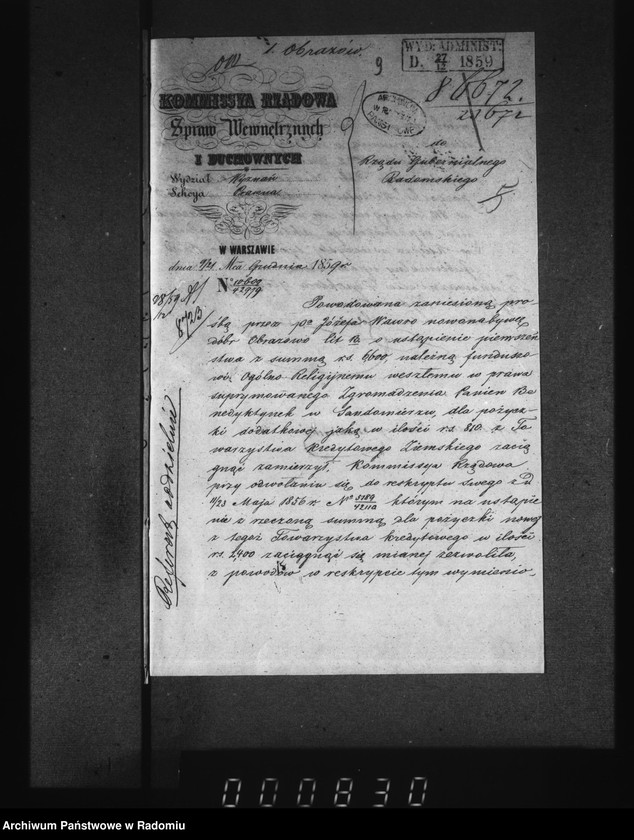 1. Obrazów.
WYD: ADMINIST:
D. 27/12 1859
9
86072.
21672
KOMMISSYA RZĄDOWA
Spraw Wewnętrznych
I DUCHOWNYCH
Wydział Wyznań
Sekcya
do
Rządu Gubernialnego
Radomskiego
5
W WARSZAWIE
dnia 9/21 Mca Grudnia 1859 r.
No
28/12 59
8723
Powodowana zaniesioną pro-
śbą przez pa Józefa Wawro nowonabywcę
dóbr Obrazowa lit o ustąpienie pierwszeń
stwa z summą rs. 6600, należną funduszo-
wi Ogólno Religijnemu weszłemu w prawa
suprymowanego Zgromadzenia Panien Be
nedyktynek w Sandomierzu, dla pożycz-
ki dodatkowej jaką w ilości rs. 810. z To
warzystwa Kredytowego Ziemskiego zacią
gnąć zamierzył, Kommissya Rządowa
przy odwołaniu się do reskryptu swego z d.
11/23 Maja 1856 r. No którym na ustąpie
nie z rzeczoną summą dla pożyczki nowej
z tegoż Towarzystwa kredytowego w ilości
rs. 2,400 zaciągnąć się mianej zezwoliła,
z powodów w reskrypcie tym wymienio-
Referentą oddzielnie
000830
Archiwum Państwowe w Radomiu